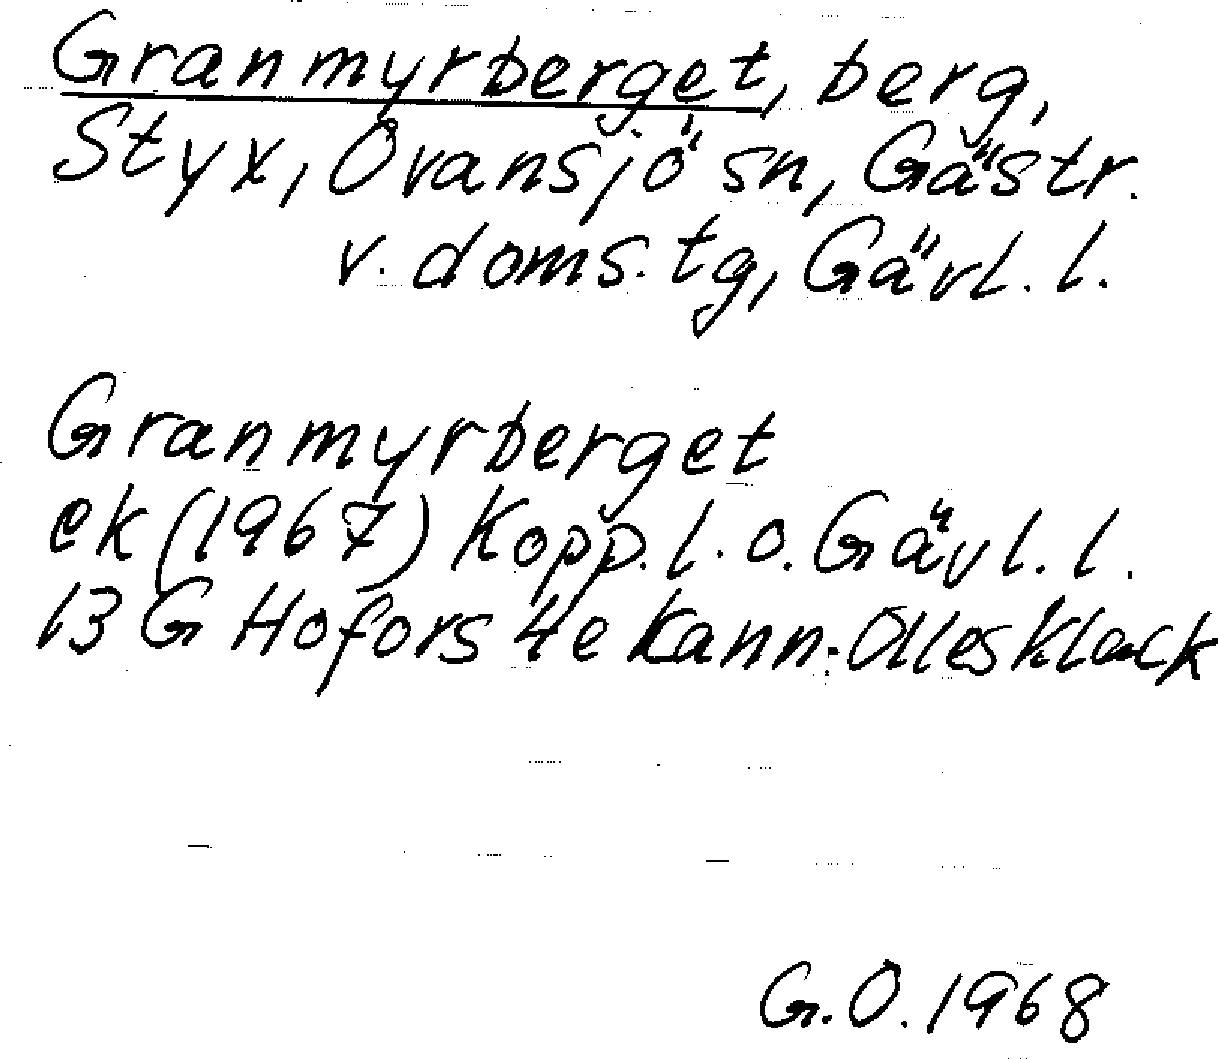 Granmyrberget, berg,
Styx, Ovansjö sn, Gästr.
v. doms. tg, Gävl. l.
Granmyrberget
ek (1967) Kopp. l. o. Gävl. l.
13 G Hofors 4e Kann: Olles Klack
G.O. 1968